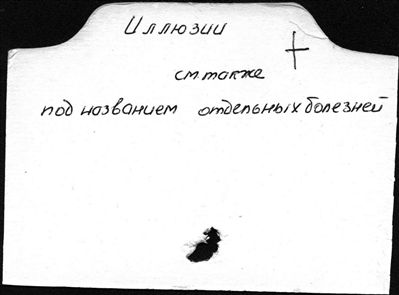 Иллюзии
см также
под названием отдельных болезней